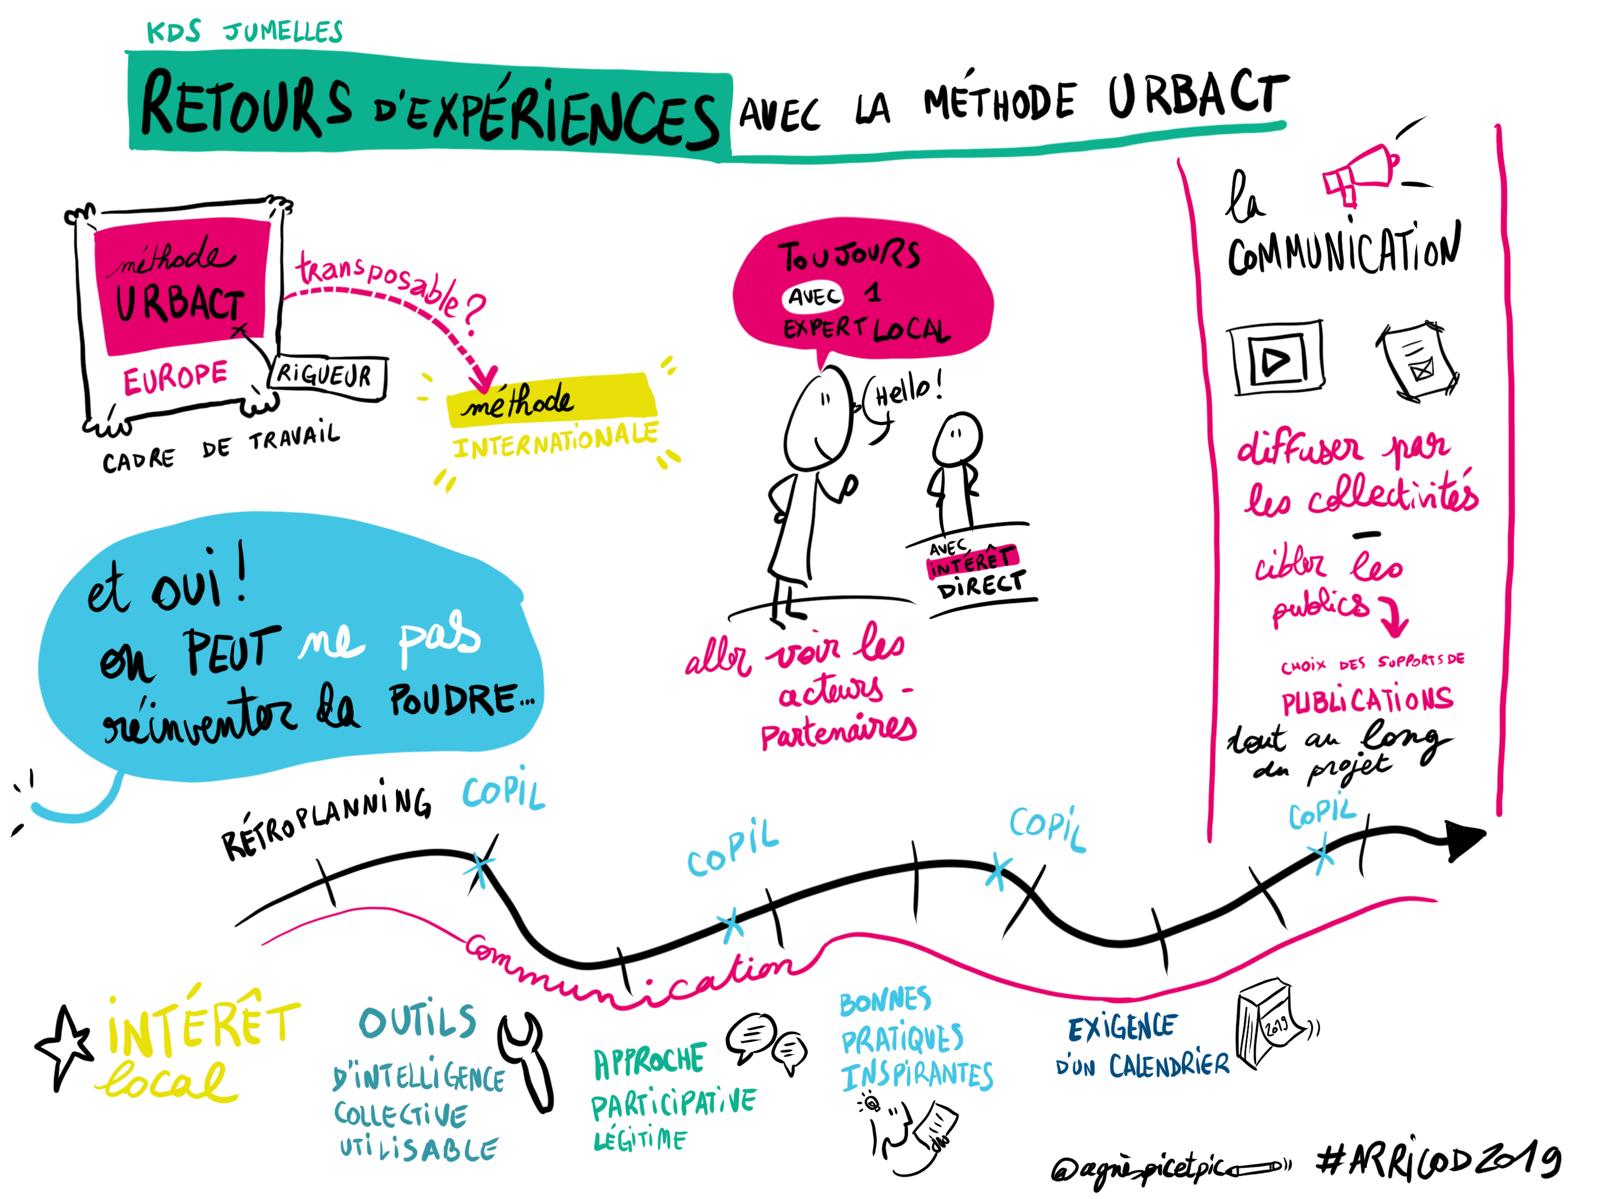 KDS JUMELLES
RETOURS D'EXPÉRIENCES AVEC LA MÉTHODE URBACT
méthode
URBACT
EUROPE
RIGUEUR
CADRE DE TRAVAIL
transposable?
méthode
INTERNATIONALE
TOUJOURS
AVEC 1
EXPERT LOCAL
Hello!
AVEC
INTÉRÊT
DIRECT
aller voir les
acteurs -
Partenaires
la
COMMUNICATION
diffuser par
les collectivités
-
cibler les
publics
CHOIX DES SUPPORTS DE
PUBLICATIONS
tout au long
du projet
et oui!
on PEUT ne pas
réinventer la POUDRE...
RÉTROPLANNING
COPIL
COPIL
COPIL
COPIL
communication
INTÉRÊT
local
OUTILS
D'INTELLIGENCE
COLLECTIVE
UTILISABLE
APPROCHE
PARTICIPATIVE
LÉGITIME
BONNES
PRATIQUES
INSPIRANTES
EXIGENCE
D'UN CALENDRIER
2019
@agnèspicetpic
#ARRICOD2019